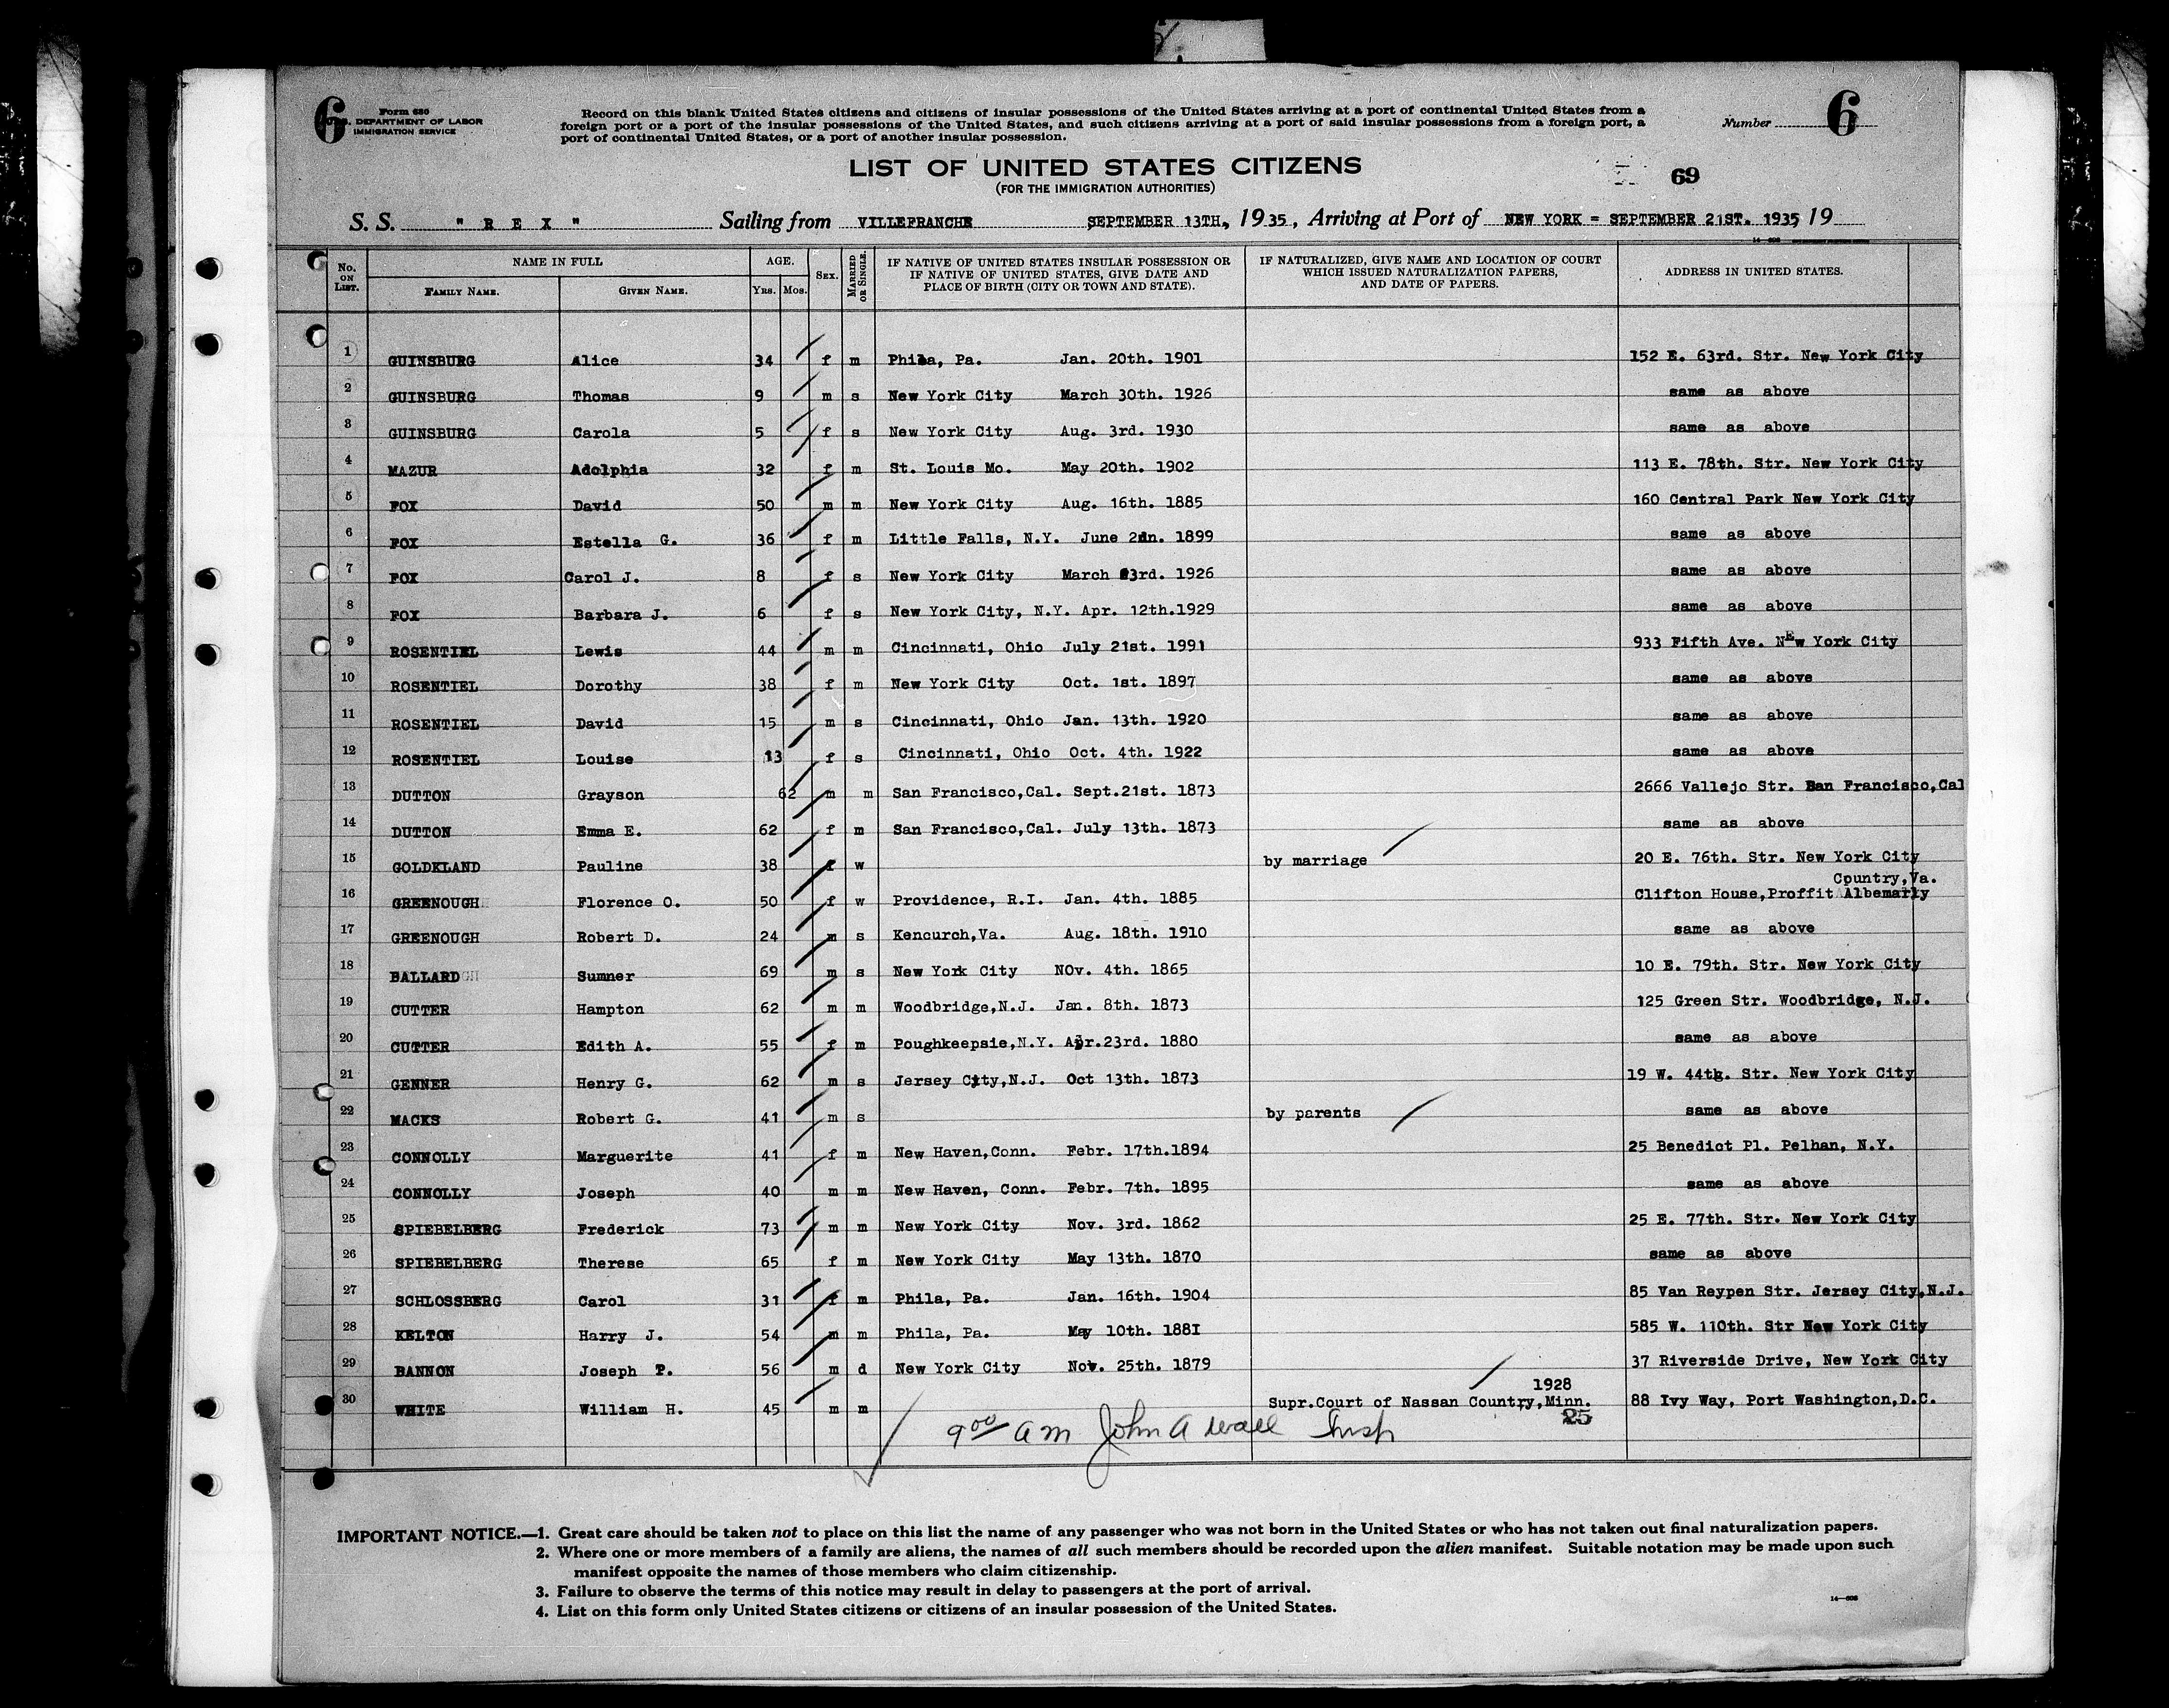 6
Form 630
U.S. DEPARTMENT OF LABOR
IMMIGRATION SERVICE
Record on this blank United States citizens and citizens of insular possessions of the United States arriving at a port of continental United States from a
foreign port or a port of the insular possessions of the United States, and such citizens arriving at a port of said insular possessions from a foreign port, a
port of continental United States, or a port of another insular possession.
Number 6
LIST OF UNITED STATES CITIZENS
(FOR THE IMMIGRATION AUTHORITIES)
69
S. S. " R E X " Sailing from VILLEFRANCHE SEPTEMBER 13TH, 1935, Arriving at Port of NEW YORK = SEPTEMBER 21ST. 1935, 19
No. ON LIST. NAME IN FULL FAMILY NAME. GIVEN NAME. AGE. YRS. MOS. SEX. MARRIED OR SINGLE. IF NATIVE OF UNITED STATES INSULAR POSSESSION OR IF NATIVE OF UNITED STATES, GIVE DATE AND PLACE OF BIRTH (CITY OR TOWN AND STATE). IF NATURALIZED, GIVE NAME AND LOCATION OF COURT WHICH ISSUED NATURALIZATION PAPERS, AND DATE OF PAPERS. ADDRESS IN UNITED STATES.
1 GUINSBURG Alice 34 f m Phila, Pa. Jan. 20th. 1901 152 E. 63rd. Str. New York City
2 GUINSBURG Thomas 9 m s New York City March 30th. 1926 same as above
3 GUINSBURG Carola 5 f s New York City Aug. 3rd. 1930 same as above
4 MAZUR Adolphia 32 f m St. Louis Mo. May 20th. 1902 113 E. 78th. Str. New York City
5 FOX David 50 m m New York City Aug. 16th. 1885 160 Central Park New York City
6 FOX Estella G. 36 f m Little Falls, N.Y. June 2dn. 1899 same as above
7 FOX Carol J. 8 f s New York City March 23rd. 1926 same as above
8 FOX Barbara J. 6 f s New York City, N.Y. Apr. 12th.1929 same as above
9 ROSENTIEL Lewis 44 m m Cincinnati, Ohio July 21st. 1991 933 Fifth Ave. NEw York City
10 ROSENTIEL Dorothy 38 f m New York City Oct. 1st. 1897 same as above
11 ROSENTIEL David 15 m s Cincinnati, Ohio Jan. 13th. 1920 same as above
12 ROSENTIEL Louise 13 f s Cincinnati, Ohio Oct. 4th. 1922 same as above
13 DUTTON Grayson 62 m m San Francisco,Cal. Sept.21st. 1873 2666 Vallejo Str. San Francisco,Cal
14 DUTTON Emma E. 62 f m San Francisco,Cal. July 13th. 1873 same as above
15 GOLDKLAND Pauline 38 f w by marriage 20 E. 76th. Str. New York City
Country,Va.
16 GREENOUGH Florence O. 50 f w Providence, R.I. Jan. 4th. 1885 Clifton House,Proffit Albemarly
17 GREENOUGH Robert D. 24 m s Kencurch,Va. Aug. 18th. 1910 same as above
18 BALLARD Sumner 69 m s New York City NOv. 4th. 1865 10 E. 79th. Str. New York City
19 CUTTER Hampton 62 m m Woodbridge,N.J. Jan. 8th. 1873 125 Green Str. Woodbridge, N.J.
20 CUTTER Edith A. 55 f m Poughkeepsie,N.Y. Apr.23rd. 1880 same as above
21 GENNER Henry G. 62 m s Jersey City,N.J. Oct 13th. 1873 19 W. 44th. Str. New York City
22 MACKS Robert G. 41 m s by parents same as above
23 CONNOLLY Marguerite 41 f m New Haven,Conn. Febr. 17th.1894 25 Benedict Pl. Pelhan, N.Y.
24 CONNOLLY Joseph 40 m m New Haven, Conn. Febr. 7th. 1895 same as above
25 SPIEBELBERG Frederick 73 m m New York City Nov. 3rd. 1862 25 E. 77th. Str. New York City
26 SPIEBELBERG Therese 65 f m New York City May 13th. 1870 same as above
27 SCHLOSSBERG Carol 31 f m Phila, Pa. Jan. 16th. 1904 85 Van Reypen Str. Jersey City,N.J.
28 KELTON Harry J. 54 m m Phila, Pa. May 10th. 1881 585 W. 110th. Str New York City
29 BANNON Joseph P. 56 m d New York City Nov. 25th. 1879 37 Riverside Drive, New York City
1928
30 WHITE William H. 45 m m Supr.Court of Nassan Country,Minn. 88 Ivy Way, Port Washington,D.C.
25
9 00 am John A Wall Insp
IMPORTANT NOTICE.—1. Great care should be taken not to place on this list the name of any passenger who was not born in the United States or who has not taken out final naturalization papers.
2. Where one or more members of a family are aliens, the names of all such members should be recorded upon the alien manifest. Suitable notation may be made upon such
manifest opposite the names of those members who claim citizenship.
3. Failure to observe the terms of this notice may result in delay to passengers at the port of arrival.
4. List on this form only United States citizens or citizens of an insular possession of the United States.